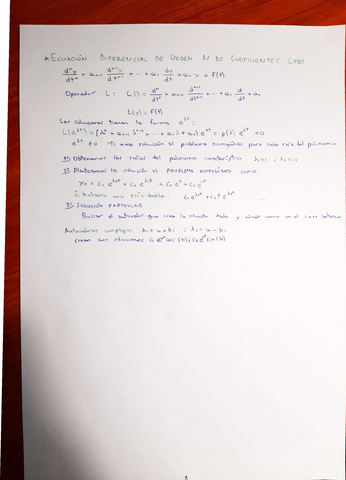 * ECUACIÓN DIFERENCIAL DE ORDEN N DE COEFICIENTES CTES
dⁿy/dtⁿ + aₙ₋₁ dⁿ⁻¹y/dtⁿ⁻¹ + ... + a₁ dy/dt + a₀ y = f(t)
Operador L: L() = dⁿ/dtⁿ + aₙ₋₁ dⁿ⁻¹/dtⁿ⁻¹ + ... + a₁ d/dt + a₀
L(y) = f(t)
Las soluciones tienen la forma e^λt
L(e^λt) = (λⁿ + aₙ₋₁ λⁿ⁻¹ + ... + a₁ λ + a₀) e^λt = p(λ) e^λt = 0
e^λt ≠ 0 ⇒ una solución al problema homogéneo para cada raíz del polinomio
1) Obtenemos las raíces del polinomio característico
2) Planteamos la solución al problema homogéneo como:
Si hubiera una raíz doble: c₁e^λ₁t + c₂ t e^λ₁t ....
3) SOLUCIÓN PARTICULAR
Buscar el que crea la solución como en el caso anterior
Autovalores complejos λ₁ = a + bi ; λ₂ = a - bi
crean dos soluciones: